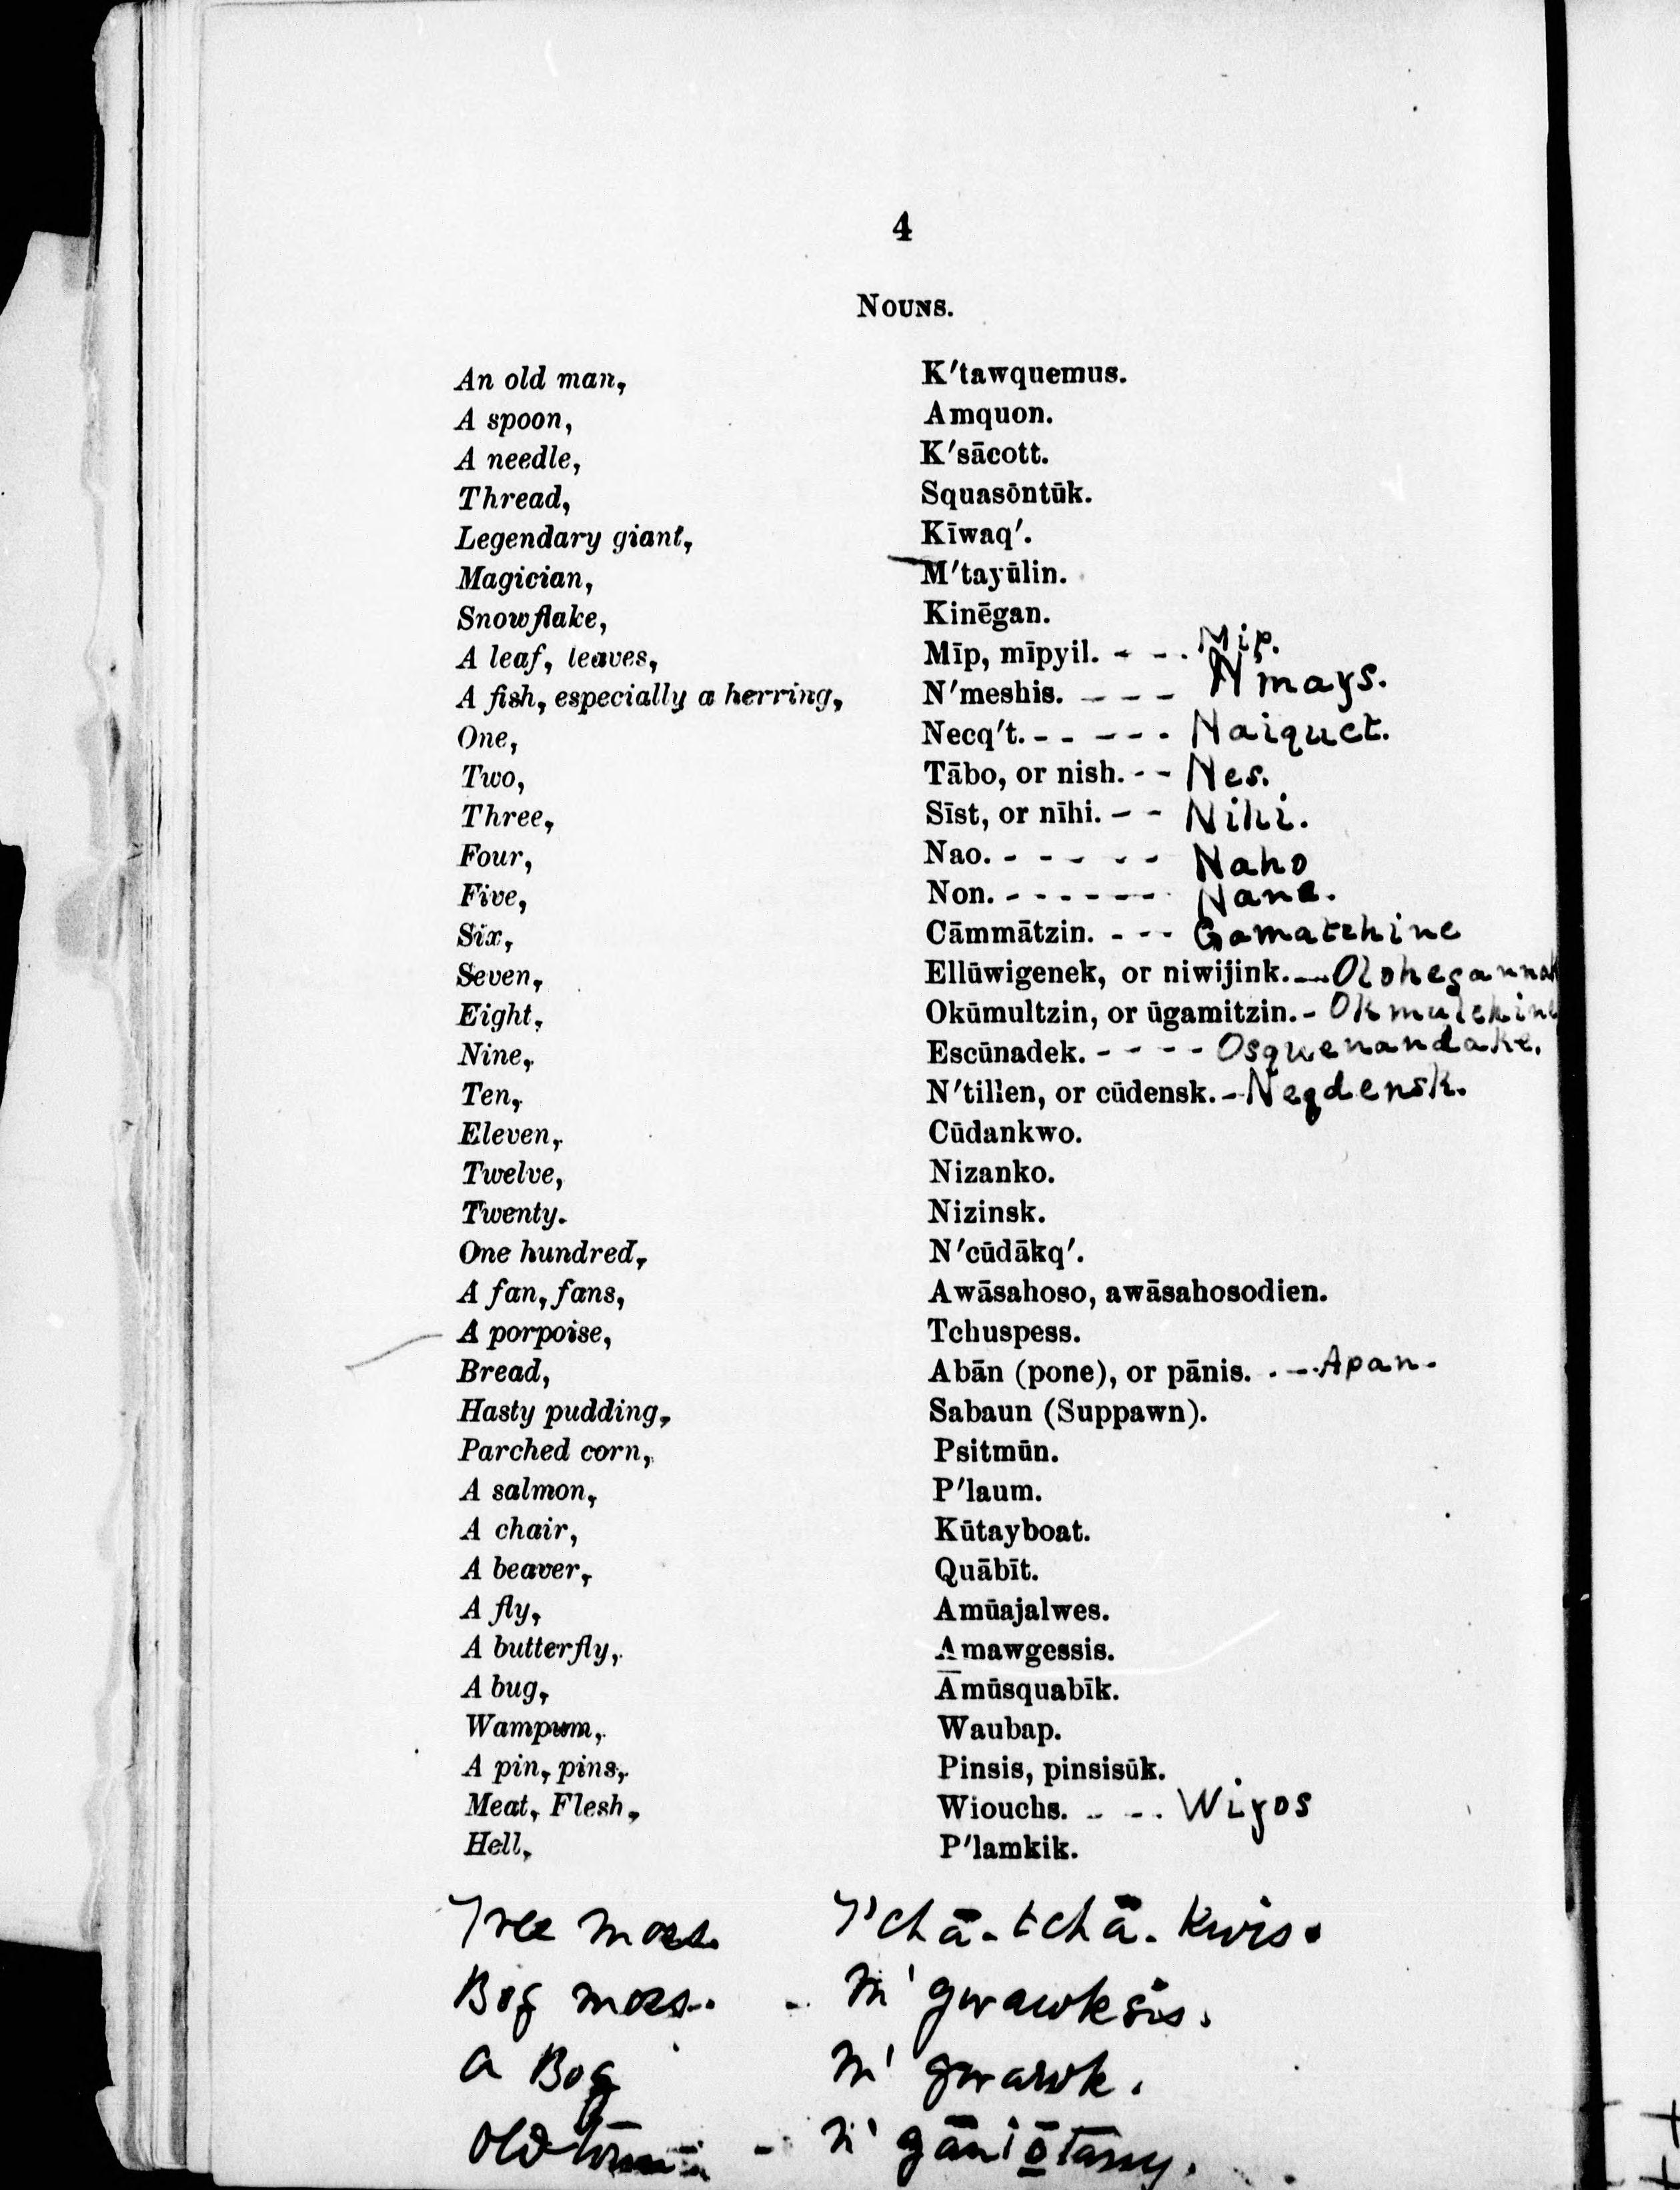 4
NOUNS.
An old man, K'tawquemus.
A spoon, Amquon.
A needle, K'sācott.
Thread, Squasōntūk.
Legendary giant, Kīwaq'.
Magician, M'tayūlin.
Snowflake, Kinēgan.
A leaf, leaves, Mīp, mīpyil. - - . Mip.
A fish, especially a herring, N'meshis. - - - N'mays.
One, Necq't. - - - - - . Naiquet.
Two, Tābo, or nish. - - Nes.
Three, Sīst, or nīhi. - - Nihi.
Four, Nao. - - - - - Naho
Five, Non. - - - - - - Nane.
Six, Cāmmātzin. - - - Gamatchine
Seven, Ellūwigenek, or niwijink. - Olohegannak
Eight, Okūmultzin, or ūgamitzin. - Okmulchine
Nine, Escūnadek. - - - - Osquenandake.
Ten, N'tillen, or cūdensk. - Neqdensk.
Eleven, Cūdankwo.
Twelve, Nizanko.
Twenty. Nizinsk.
One hundred, N'cūdākq'.
A fan, fans, Awāsahoso, awāsahosodien.
A porpoise, Tchuspess.
Bread, Abān (pone), or pānis. . - Apan.
Hasty pudding, Sabaun (Suppawn).
Parched corn, Psitmūn.
A salmon, P'laum.
A chair, Kūtayboat.
A beaver, Quābīt.
A fly, Amūajalwes.
A butterfly, Amawgessis.
A bug, Āmūsquabīk.
Wampum, Waubap.
A pin, pins, Pinsis, pinsisūk.
Meat, Flesh, Wiouchs. - - . Wiyos
Hell, P'lamkik.
Tree moss. T'chā-tchā-kwis.
Bog moss. - M'gwawksis.
A Bog M'gwawk.
Old town -